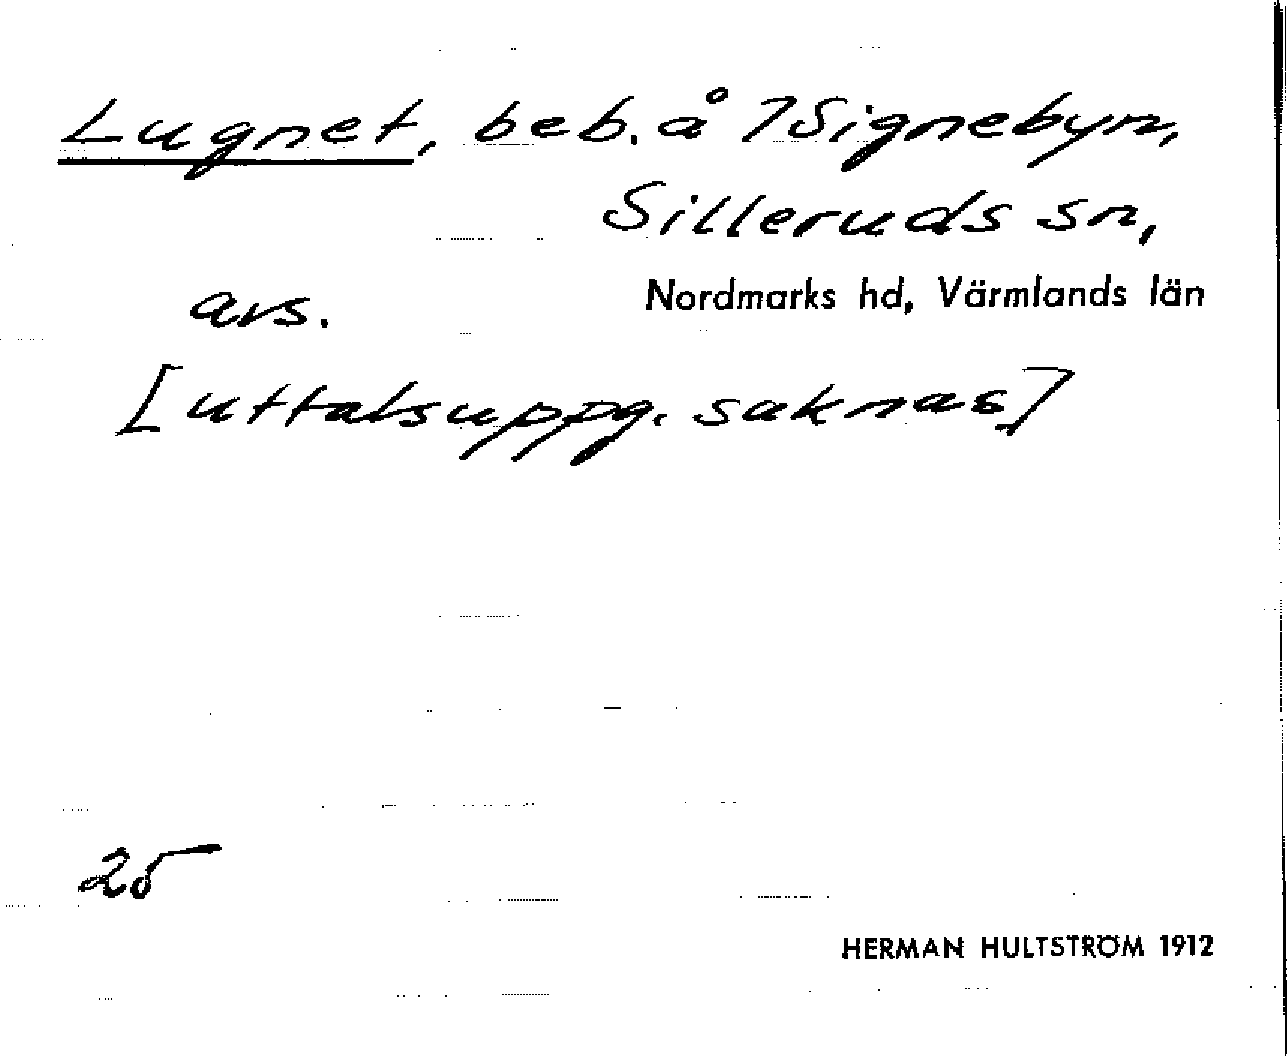 Lugnet, beb. å 7Signebyn,
Silleruds sn,
Nordmarks hd, Värmlands län
avs.
[uttalsuppg. saknas]
25
HERMAN HULTSTRÖM 1912